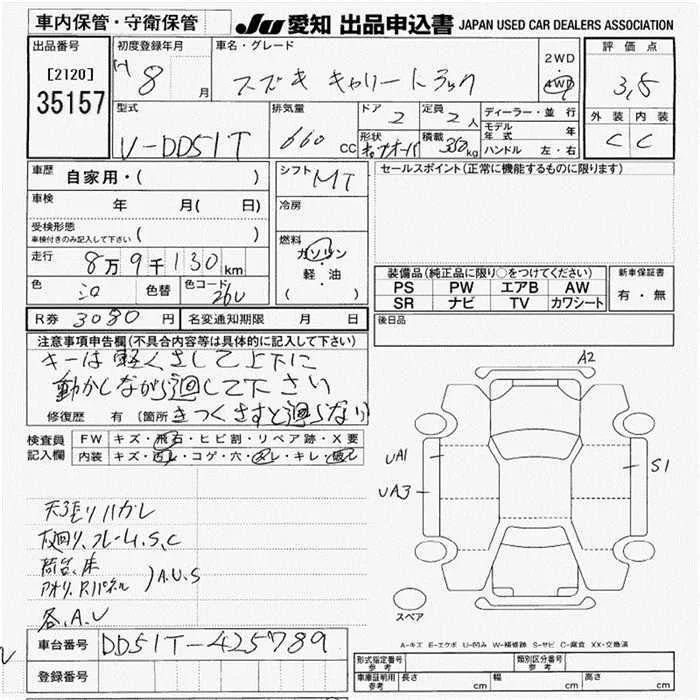 車内保管・守衛保管
JU 愛知 出品申込書 JAPAN USED CAR DEALERS ASSOCIATION
出品番号
[2120]
35157
初度登録年月
8 月
車名・グレード
スズキ キャリートラック
2WD
4WD
評価点
3,5
外装 内装
C C
型式
V-DD51T
排気量
660 cc
ドア
2
定員
2人
形状
積載
350kg
ディーラー・並行
モデル年式 年
ハンドル 左・右
車歴
自家用・( )
車検 年 月( 日)
受検形態
車検付きのみ記入して下さい ( )
走行
8万9千130km
色
シロ
色替
色コード
26U
シフト MT
冷房
燃料
ガソリン
・
軽・油
( )
セールスポイント(正常に機能するものに限ります)
装備品(純正品に限り○をつけてください)
PS PW エアB AW
SR ナビ TV カワシート
新車保証書
有・無
R券 3080 円
名変通知期限 月 日
後日品
注意事項申告欄(不具合内容等は具体的に記入して下さい)
キーは軽くさして上下に
動かしながら廻して下さい
修復歴 有 〔箇所 きつくさすと廻らない〕
検査員記入欄
FW キズ・飛石・ヒビ割・リペア跡・X要
内装 キズ・汚レ・コゲ・穴・スレ・キレ・破レ
天張りハガレ
下廻り、フレーム、S、C
荷台、床
アオリ、R.パネル
)A、U、S
各、A、U
A2
UA1
UA3
S1
スペア
A-キズ E-エクボ U-凹み W-補修跡 S-サビ C-腐食 XX-交換済
車台番号 DD51T-425789
登録番号
形式指定番号
参考
類別区分番号
参考
車庫証明用
参考
長さ cm
幅 cm
高さ cm